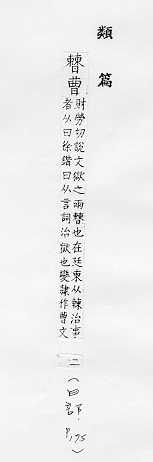 類篇
𣍘曹
財勞切說文獄之兩𣍘也在廷東从㯥治事
者从曰徐鍇曰以言詞治獄也變隸作曹文
二(曰部.
P.175)